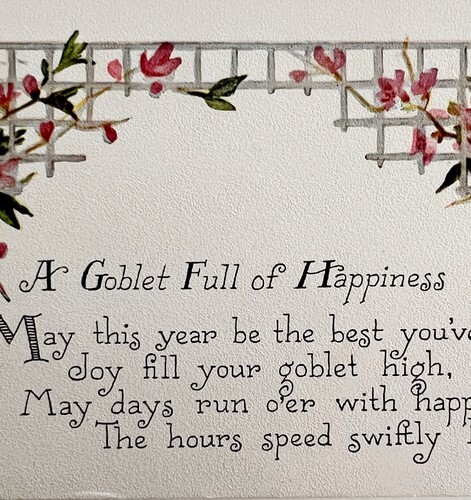 A Goblet Full of Happiness
May this year be the best you've
Joy fill your goblet high,
May days run o'er with
The hours speed swiftly